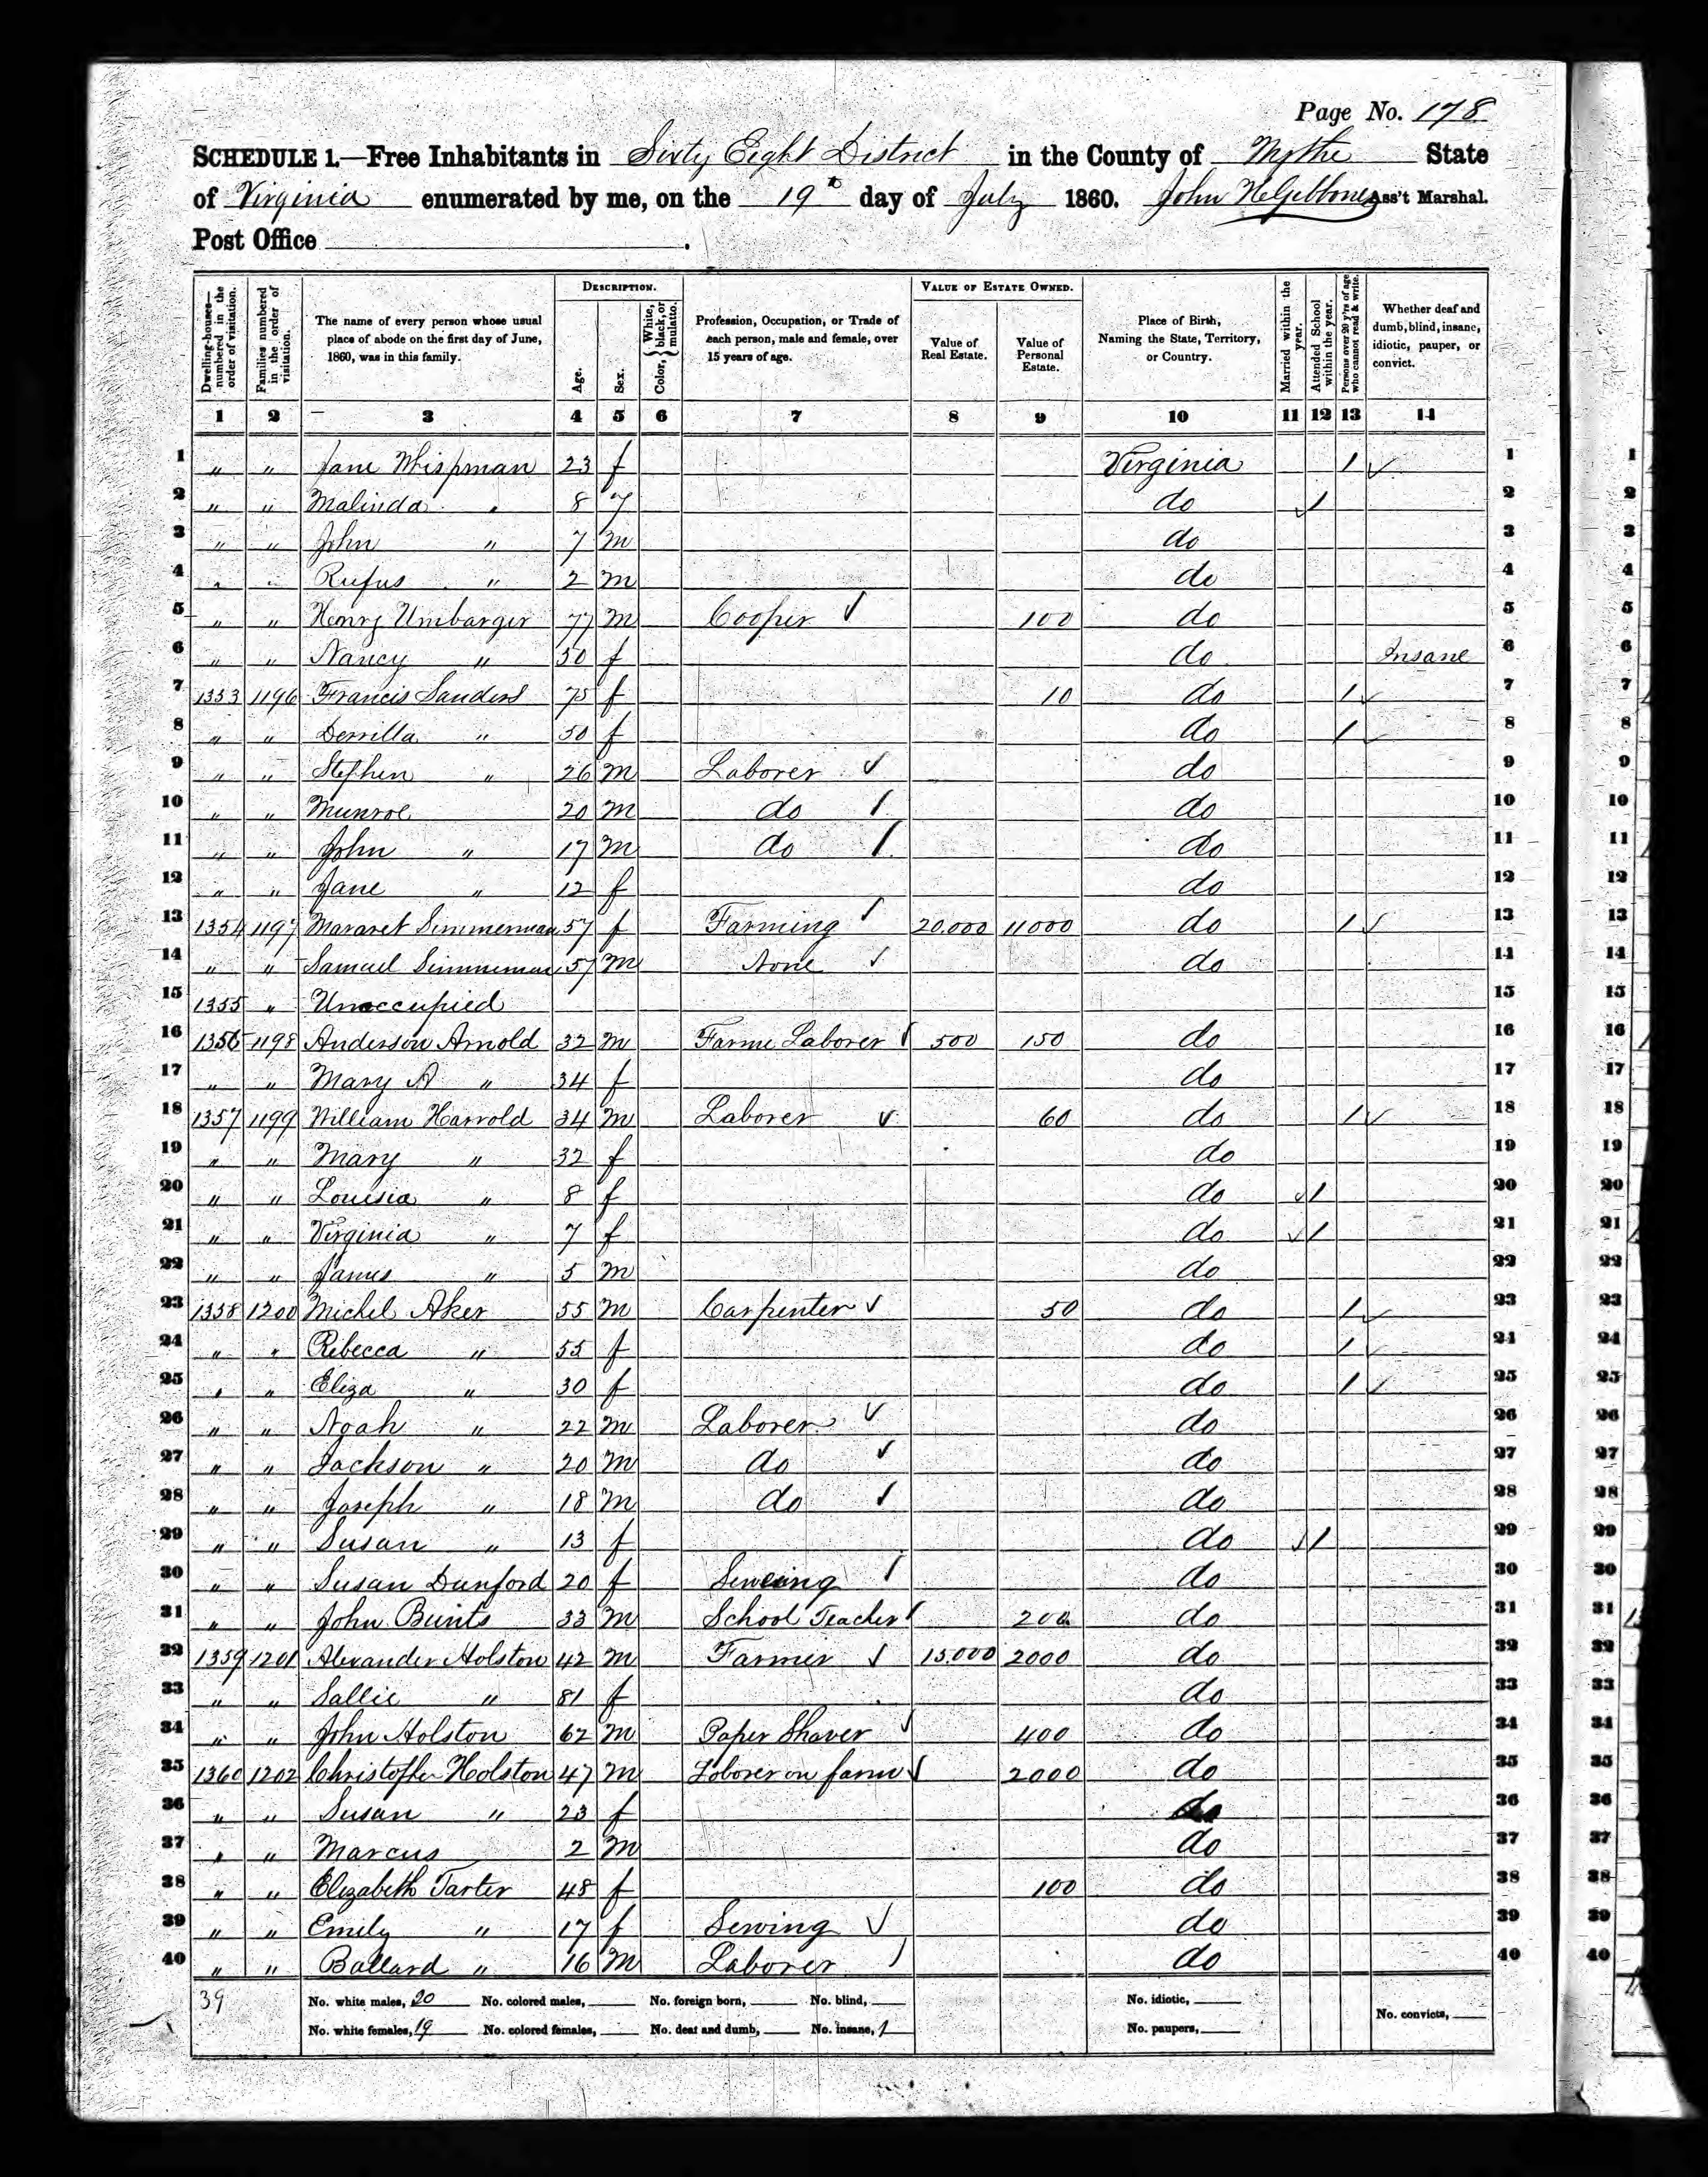 Page No. 178
SCHEDULE 1.—Free Inhabitants in Sixty Eight District in the County of Wythe State
of Virginia enumerated by me, on the 19th day of July 1860. John H Gibboney Ass't Marshal.
Post Office .
Dwelling-houses—numbered in the order of visitation.
Families numbered in the order of visitation.
The name of every person whose usual place of abode on the first day of June, 1860, was in this family.
DESCRIPTION.
Age.
Sex.
Color, { White, black, or mulatto.
Profession, Occupation, or Trade of each person, male and female, over 15 years of age.
VALUE OF ESTATE OWNED.
Value of Real Estate.
Value of Personal Estate.
Place of Birth, Naming the State, Territory, or Country.
Married within the year.
Attended School within the year.
Persons over 20 y'rs of age who cannot read & write.
Whether deaf and dumb, blind, insane, idiotic, pauper, or convict.
1 2 3 4 5 6 7 8 9 10 11 12 13 14
1 " " Jane Whispman 23 f Virginia / 1 1
2 " " Malinda " 8 f do / 2 2
3 " " John " 7 m do 3 3
4 " " Rufus " 2 m do 4 4
5 " " Henry Umbarger 77 m Cooper 100 do 5 5
6 " " Nancy " 50 f do Insane 6 6
7 1353 1196 Francis Sanders 75 f 10 do / 7 7
8 " " Derrilla " 50 f do / 8 8
9 " " Stephen " 26 m Laborer do 9 9
10 " " Munroe 20 m do do 10 10
11 " " John " 17 m do do 11 11
12 " " Jane " 12 f do 12 12
13 1354 1197 Mararet Simmerman 57 f Farming 20.000 11000 do / 13 13
14 " " Samuel Simmerman 57 m None do 14 14
15 1355 " Unoccupied 15 15
16 1356 1198 Anderson Arnold 32 m Farme Laborer 500 150 do 16 16
17 " " Mary A " 34 f do 17 17
18 1357 1199 William Harrold 34 m Laborer 60 do / 18 18
19 " " Mary " 32 f do 19 19
20 " " Louisia " 8 f do / 20 20
21 " " Virginia " 7 f do / 21 21
22 " " James " 5 m do 22 22
23 1358 1200 Michel Aker 55 m Carpenter 50 do / 23 23
24 " " Rebecca " 55 f do / 24 24
25 " " Eliza " 30 f do / 25 25
26 " " Noah " 22 m Laborer do 26 26
27 " " Jackson " 20 m do do 27 27
28 " " Joseph " 18 m do do 28 28
29 " " Susan " 13 f do / 29 29
30 " " Susan Dunford 20 f Seweing do 30 30
31 " " John Bunts 33 m School Teacher 200 do 31 31
32 1359 1201 Alexander Holston 42 m Farmer 15.000 2000 do 32 32
33 " " Sallie " 81 f do 33 33
34 " " John Holston 62 m Paper Shaver 400 do 34 34
35 1360 1202 Christopher Holston 47 m Loborer on farm 2000 do 35 35
36 " " Susan " 23 f do 36 36
37 " " Marcus 2 m do 37 37
38 " " Elizabeth Tarter 48 f 100 do 38 38
39 " " Emily " 17 f Sewing do 39 39
40 " " Ballard " 16 m Laborer do 40 40
39 No. white males, 20 No. colored males, No. foreign born, No. blind, No. idiotic, No. convicts,
No. white females, 19 No. colored females, No. deaf and dumb, No. insane, 1 No. paupers,